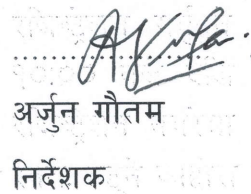 अर्जुन गौतम
निर्देशक